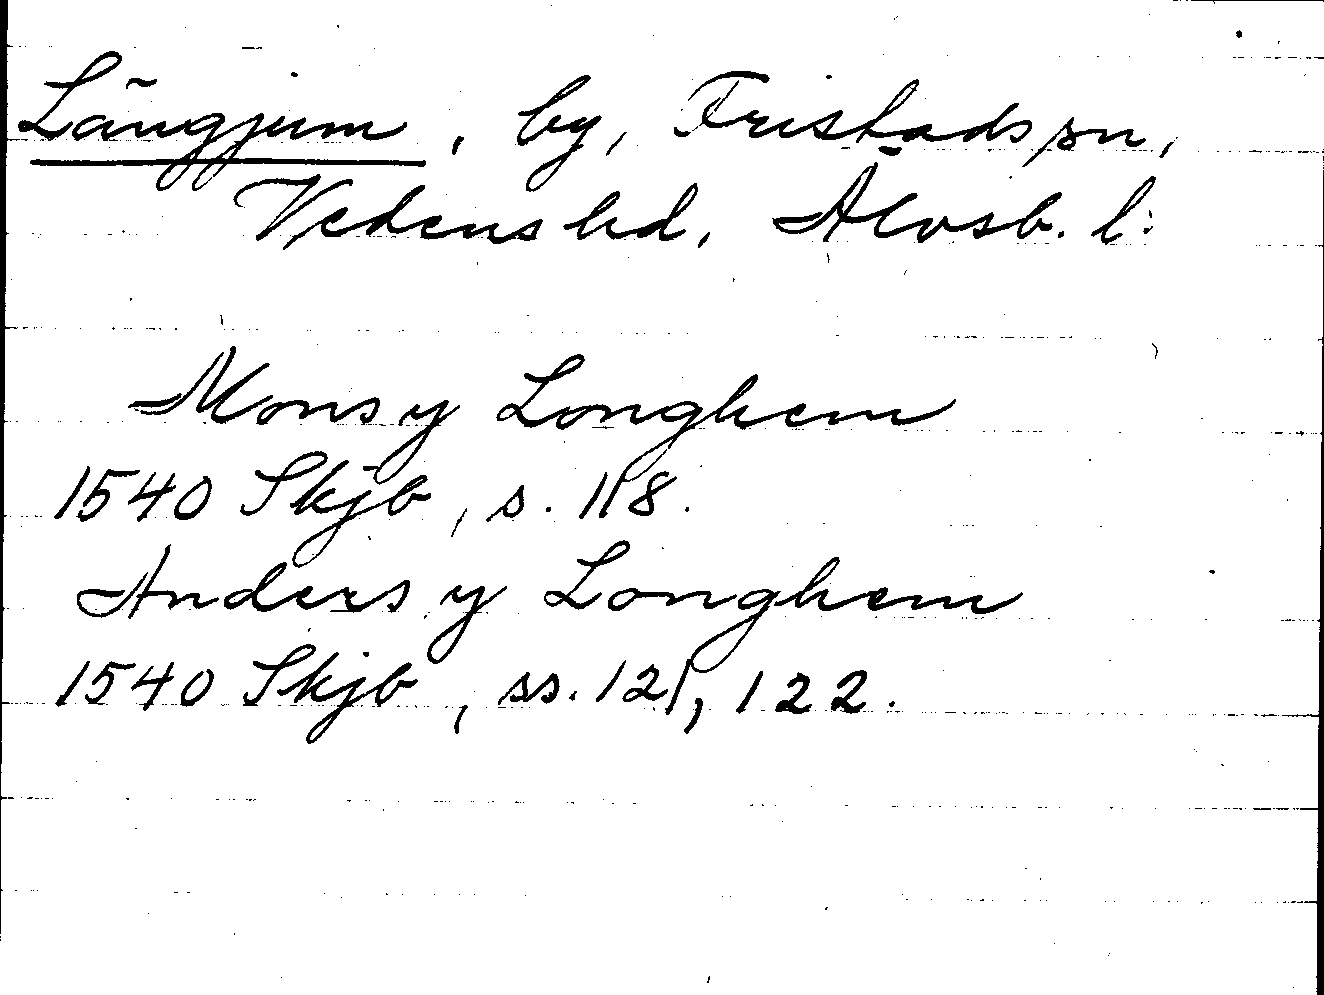 Långjum, by, Fristads sn,
Vedens hd, Älvsb. l:
Mons y Longhem
1540 Skjb, s. 118.
Anders y Longhem
1540 Skjb, ss. 121, 122.